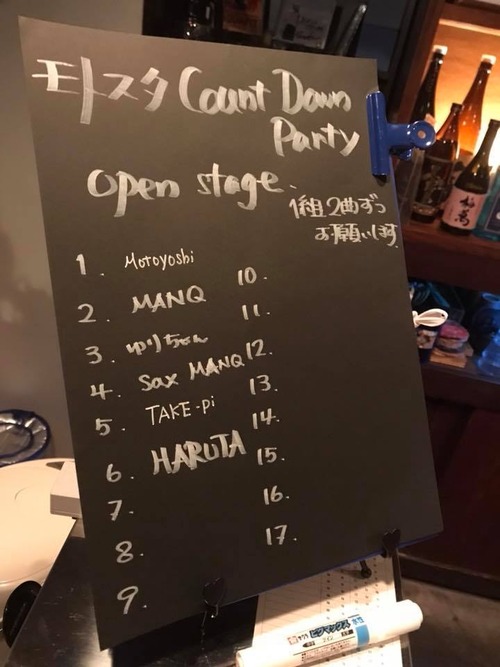 モトスタ Count Down
Party
open stage.
1組2曲ずつ
お願いします
1. Motoyoshi
2. MANQ
3. ゆりちゃん
4. Sax MANQ
5. TAKE-pi
6. HARUTA
7.
8.
9.
10.
11.
12.
13.
14.
15.
16.
17.
ピグマックス